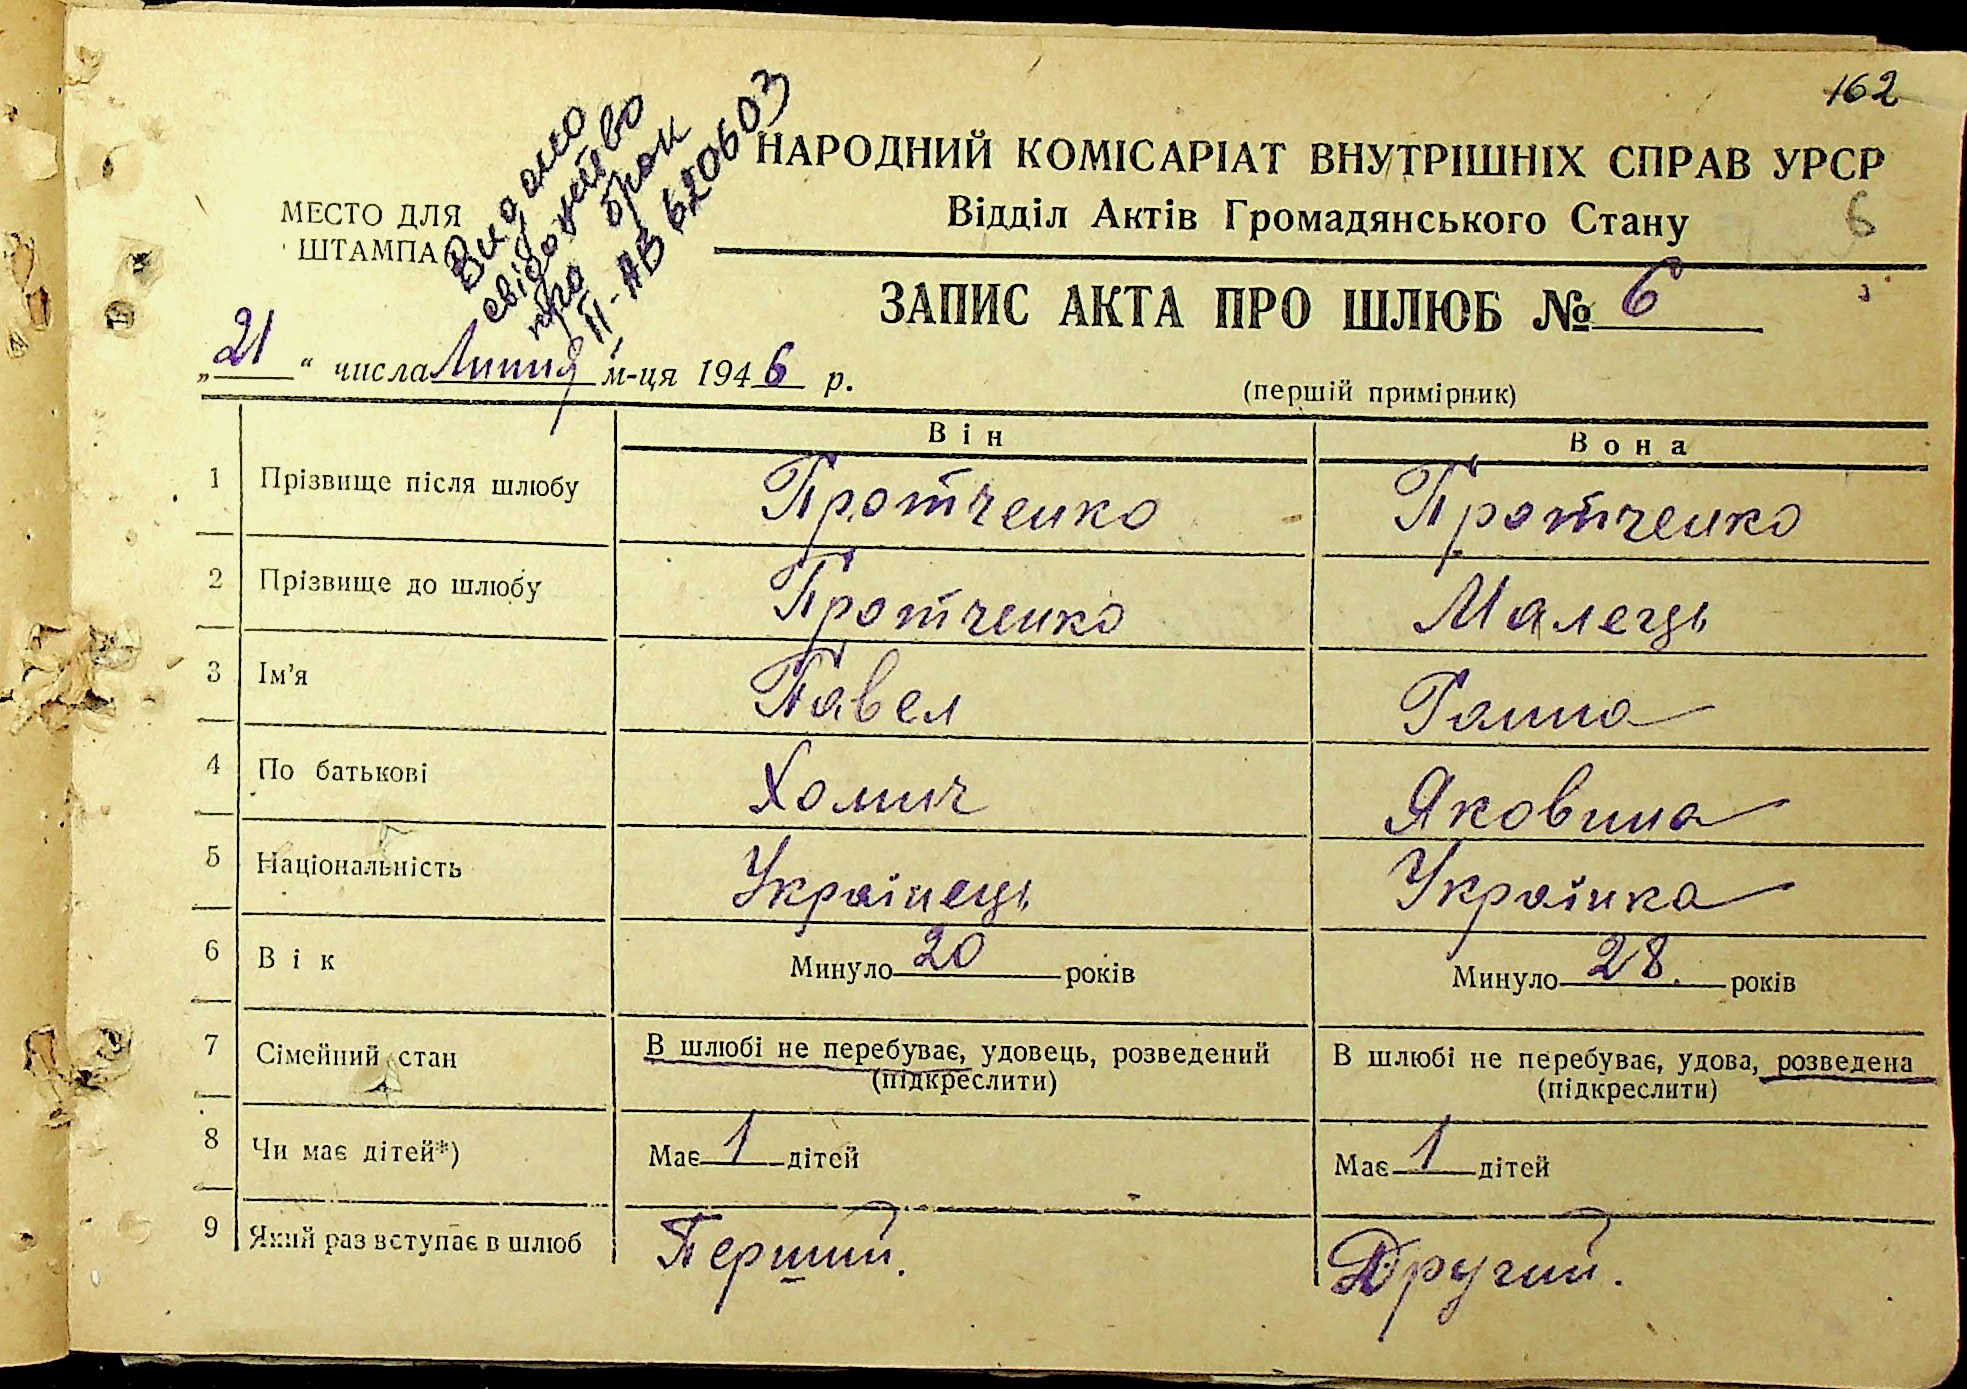 162
Видано
свідоцтво
про брак
II-АВ 620603
НАРОДНИЙ КОМІСАРІАТ ВНУТРІШНІХ СПРАВ УРСР
Відділ Актів Громадянського Стану
6
МЕСТО ДЛЯ
ШТАМПА
ЗАПИС АКТА ПРО ШЛЮБ № 6
„21“ числа Липня м-ця 1946 р.
(першій примірник)
Він Вона
1 Прізвище після шлюбу Протченко Протченко
2 Прізвище до шлюбу Протченко Малець
3 Ім’я Павел Ганна
4 По батькові Хомич Яковина
5 Національність Українець Українка
6 Вік Минуло 20 років Минуло 28. років
7 Сімейний стан В шлюбі не перебуває, удовець, розведений В шлюбі не перебуває, удова, розведена
(підкреслити) (підкреслити)
8 Чи має дітей*) Має 1 дітей Має 1 дітей
9 Який раз вступає в шлюб Перший. Другий.